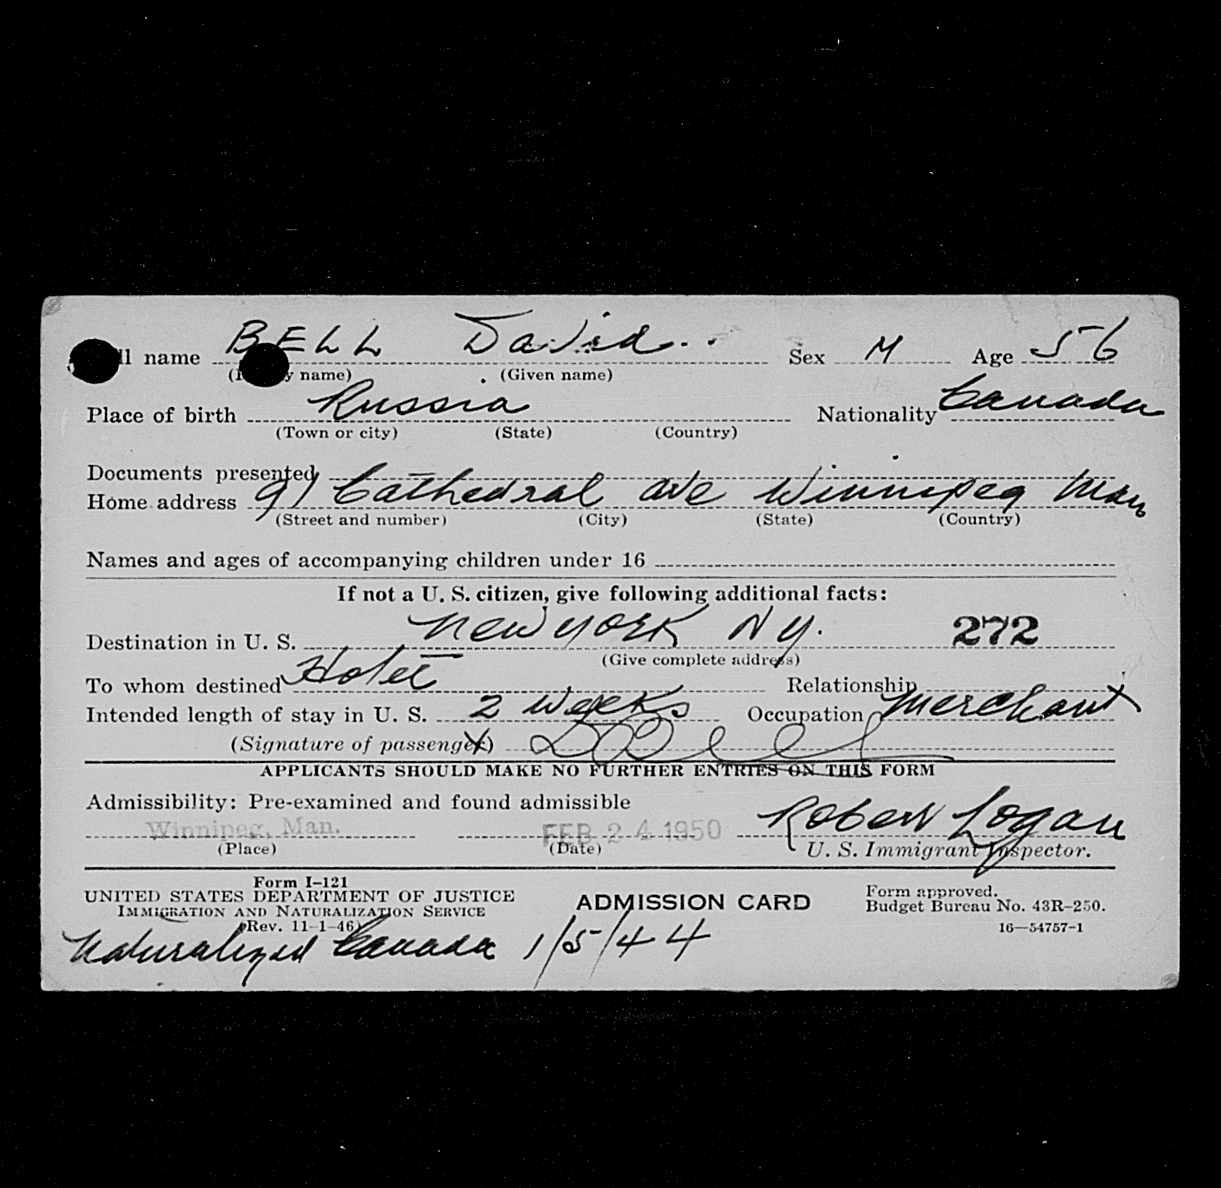 ll name BELL David Sex M Age 56
y name) (Given name)
Place of birth Russia Nationality Canada
(Town or city) (State) (Country)
Documents presented
Home address 91 Cathedral Ave Winnipeg Man
(Street and number) (City) (State) (Country)
Names and ages of accompanying children under 16
If not a U. S. citizen, give following additional facts:
Destination in U. S. New York NY. 272
(Give complete address)
To whom destined Hotel Relationship
Intended length of stay in U. S. 2 weeks Occupation Merchant
(Signature of passenger) X D Bell
APPLICANTS SHOULD MAKE NO FURTHER ENTRIES ON THIS FORM
Admissibility: Pre-examined and found admissible
Winnipeg, Man. FEB 24 1950 Robert Logan
(Place) (Date) U. S. Immigrant Inspector.
Form I-121
UNITED STATES DEPARTMENT OF JUSTICE
IMMIGRATION AND NATURALIZATION SERVICE
(Rev. 11-1-46)
ADMISSION CARD
Form approved.
Budget Bureau No. 43R-250.
16—54757-1
Naturalized Canada 1/5/44